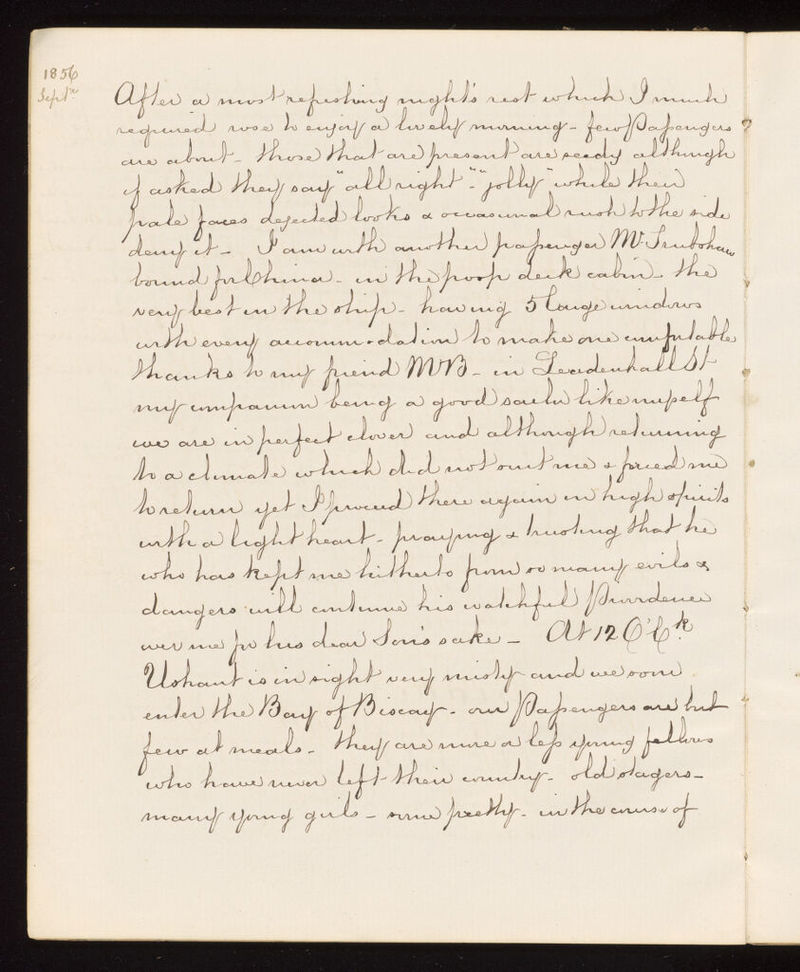 1856
Septr
After a most refreshing night's rest which I much
required rose to enjoy a lovely morning - few Passengers
are about - those that are present are seedy although
if asked they say "all right" - "jolly" while their
pale faces dejected looks & occasional rush to the side
deny it - I am with another passenger Mr
bound for China - in the poop deck cabin - the
very best in the ship - having 5 large windows
with every accommodation to make one comfortable
thanks to my friend Mr B - in Leadenhall St
my companion being a good sailor like myself
we are in perfect clover and although returning
to a climate which did not suit me & forced me
to return yet I proceed there again in high spirits
with a light heart - praying & trusting that he
who has kept me hitherto from so many evils &
dangers will continue his watchful Providence
over me for his dear Son's sake - At 12 O'Ck
Ushant is in sight very misty and we soon
enter the Bay of Biscay - our Passengers are but
few at meals - they are more or less young fellows
who have never left their country - old stagers -
many young girls - some pretty - in the course of